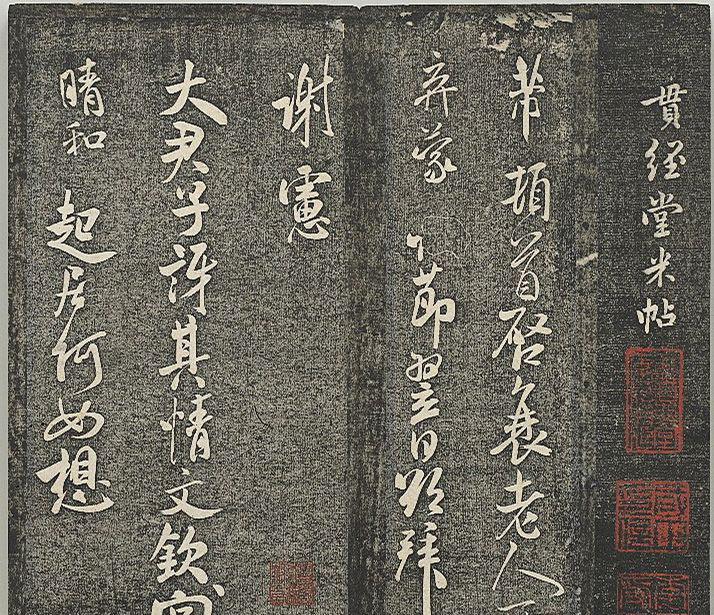 貫經堂米帖
芾頓首啓衰老人
弃蒙
節翌日欲拜
謝憲
大君子訝其情文欽
晴和
起居何如想